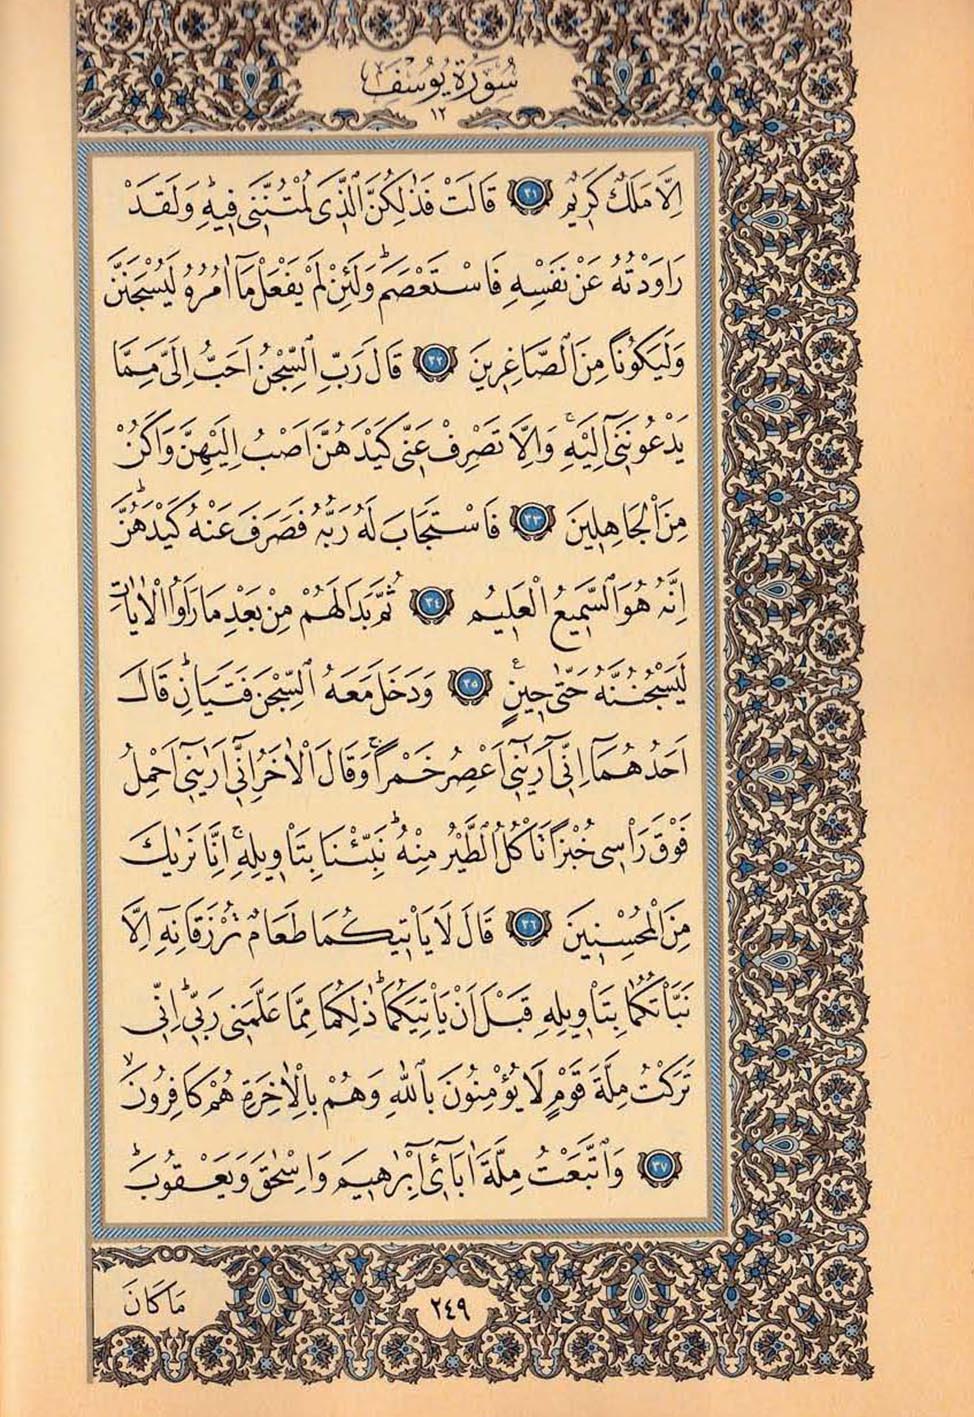 سُورَةُ يُوسُفَ
١٢
اِلَّا مَلَكٌ كَر۪يمٌ ﴿٣١﴾ قَالَتْ فَذٰلِكُنَّ الَّذ۪ى لُمْتُنَّن۪ى ف۪يهِۜ وَلَقَدْ
رَاوَدْتُهُ عَنْ نَفْسِه۪ فَاسْتَعْصَمَۜ وَلَئِنْ لَمْ يَفْعَلْ مَٓا اٰمُرُهُ لَيُسْجَنَنَّ
وَلَيَكُونًا مِنَ الصَّاغِر۪ينَ ﴿٣٢﴾ قَالَ رَبِّ السِّجْنُ اَحَبُّ اِلَىَّ مِمَّا
يَدْعُونَن۪ٓى اِلَيْهِۚ وَاِلَّا تَصْرِفْ عَنّ۪ى كَيْدَهُنَّ اَصْبُ اِلَيْهِنَّ وَاَكُنْ
مِنَ الْجَاهِل۪ينَ ﴿٣٣﴾ فَاسْتَجَابَ لَهُ رَبُّهُ فَصَرَفَ عَنْهُ كَيْدَهُنَّۜ
اِنَّهُ هُوَ السَّم۪يعُ الْعَل۪يمُ ﴿٣٤﴾ ثُمَّ بَدَا لَهُمْ مِنْ بَعْدِ مَا رَاَوُا الْاٰيَاتِ
لَيَسْجُنُنَّهُ حَتّٰى ح۪ينٍ۟ ﴿٣٥﴾ وَدَخَلَ مَعَهُ السِّجْنَ فَتَيَانِۜ قَالَ
اَحَدُهُمَٓا اِنّ۪ٓى اَرٰين۪ٓى اَعْصِرُ خَمْرًاۚ وَقَالَ الْاٰخَرُ اِنّ۪ٓى اَرٰين۪ٓى اَحْمِلُ
فَوْقَ رَاْس۪ى خُبْزًا تَاْكُلُ الطَّيْرُ مِنْهُۜ نَبِّئْنَا بِتَاْو۪يلِه۪ۚ اِنَّا نَرٰيكَ
مِنَ الْمُحْسِن۪ينَ ﴿٣٦﴾ قَالَ لَا يَاْت۪يكُمَا طَعَامٌ تُرْزَقَانِه۪ٓ اِلَّا
نَبَّاْتُكُمَا بِتَاْو۪يلِه۪ قَبْلَ اَنْ يَاْتِيَكُمَاۜ ذٰلِكُمَا مِمَّا عَلَّمَن۪ى رَبّ۪ىۜ اِنّ۪ى
تَرَكْتُ مِلَّةَ قَوْمٍ لَا يُؤْمِنُونَ بِاللّٰهِ وَهُمْ بِالْاٰخِرَةِ هُمْ كَافِرُونَۙ
﴿٣٧﴾ وَاتَّبَعْتُ مِلَّةَ اٰبَٓاء۪ٓى اِبْرٰه۪يمَ وَاِسْحٰقَ وَيَعْقُوبَۜ
مَا كَانَ
٢٤٩